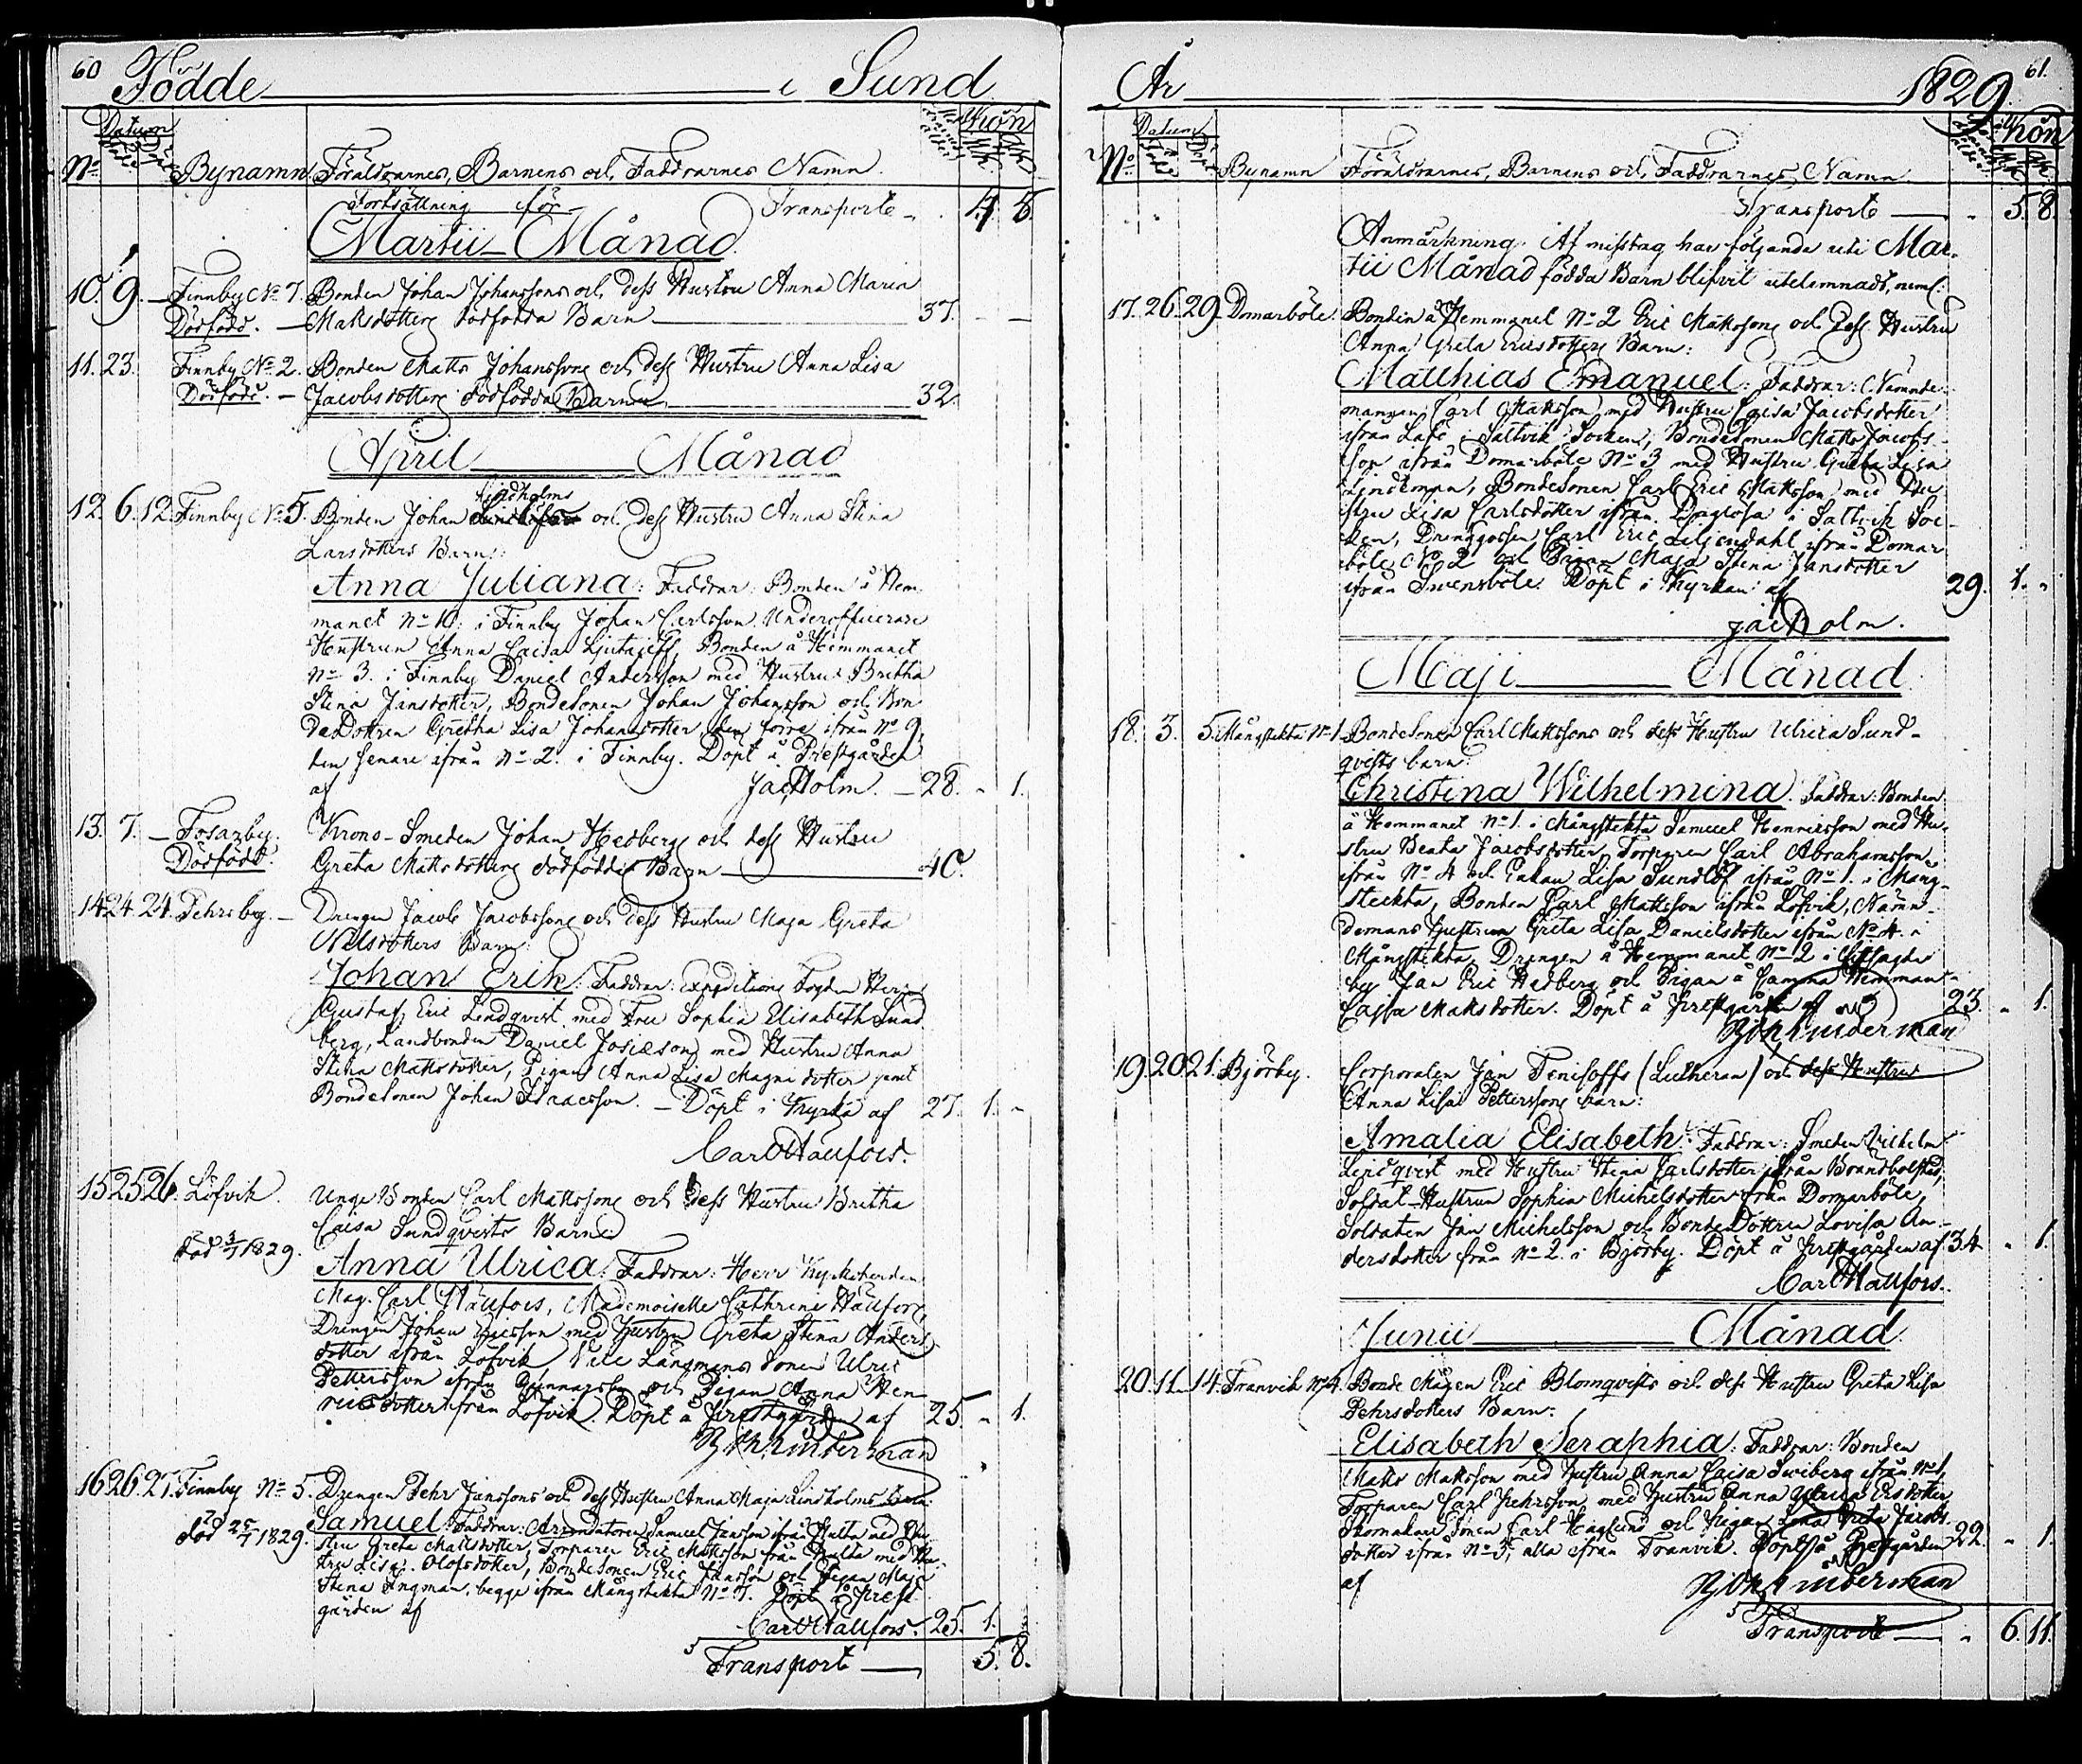 60 Födde i Sund
Datum Kön
No Bynamn. Föräldrarnes, Barnens och Faddrarnes Namn.
Fortsättning för Transporte 4 8.
Martii Månad.
10. 9. Finnby No 7. Bonden Johan Johanssons och dess Hustru Anna Maria
Dödfödd. Matsdotters dödfödda Barn 37.
11. 23. Finnby No 2. Bonden Matts Johanssons och dess Hustru Anna Lisa
Dödfödd. Jacobsdotters dödfödda Barn 32.
April Månad
Lindholms
12. 6. 12. Finnby No 5. Bonden Johan och dess Hustru Anna Stina
Larsdotters Barn:
Anna Juliana: Faddrar: Bonden å Hem
manet No 10. i Finnby Johan Carlsson, Underofficerare
Hustrun Anna Caisa Bonden å Hemmanet
No 3. i Finnby Daniel Andersson med Hustru Britha
Stina Jansdotter, Bondesonen Johan Johansson och Bon
dedottren Gretha Lisa Johansdotter, den förre ifrån No 9
den senare ifrån No 2. i Finnby. Döpt å Prestgården
af Jac Holm. 28. 1.
13. 7. Tosarby. Krono-Smeden Johan Hedbergs och dess Hustru
Dödfödd. Greta Mattsdotters dödfödda Barn 40.
14. 24. 24. Pehrsby. Drengen Jacob Jacobssons och dess Hustru Maja Greta
Nilsdotters Barn:
Johan Erik: Faddrar: Expeditions Fogden Herr
Gustaf Eric Lindqvist med Fru Sophia Elisabeth Sund
berg, Landbonden Daniel Josiæson med Hustru Anna
Stina Mattsdotter, Pigan Anna Lisa Magnidotter samt
Bondesonen Johan Isaacsson. Döpt i Kyrka af 27. 1.
Carl Hällfors.
15. 25. 26. Löfvik. Unge Bonden Carl Mattssons och dess Hustru Britha
Caisa Sundqvists Barn:
död 3/7 1829. Anna Ulrica: Faddrar: Herr Kyrkoherden
Mag. Carl Hällfors, Mademoiselle Cathrine Hällfors
Drengen Johan Ericsson med Hustru Greta Stina Anders
dotter ifrån Löfvik, Ulric
Pettersson ifrån och Pigan Anna Hen
ricsdotter ifrån Löfvik. Döpt å Prestgården af 25. 1.
Joh Linderman
16. 26. 27. Finnby No 5. Drengen Pehr Janssons och dess Hustru Anna Maja Lindholms Barn
död 25/7 1829. Samuel: Faddrar: Arrendatoren Samuel Jansson ifrån Hulta med Hu
stru Greta Mattsdotter, Torparen Eric Mattsson från Hulta med Hu
stru Lisa Olofsdotter, Bondesonen Eric Jansson och Pigan Maja
Stina Ingman, begge ifrån Mångstekta No 1. Döpt å Prest
gården af
Carl Hällfors. 25. 1.
Transport 5. 8.
År 1829. 61.
Datum Kön
No Bynamn Föräldrarnes, Barnens och Faddrarnes Namn.
Transporte 5. 8.
Anmärkning. Af misstag har följande uti Mar-
tii Månad födda Barn blifvit utelemnadt, neml:
17. 26. 29. Domarböle. Bonden å Hemmanet No 2 Eric Mattssons och dess Hustru
Anna Greta Ericsdotters Barn:
Matthias Emanuel: Faddrar: Nämnde-
mannen Carl Mattsson med Hustru Caisa Jacobsdotter
ifrån Lafö i Saltvik Socken, Bondesonen Matts Jacobs-
son ifrån Domarböle No 3 med Hustru Greta Lisa
Lindeman, Bondesonen Carl Eric Mattsson med Hu
stru Lisa Carlsdotter ifrån i Saltvik Soc-
ken, Drenggossen Carl Eric Liljendahl ifrån Domar
böle No 2 och Pigan Maja Stina Jansdotter
ifrån Svensböle. Döpt i Kyrkan af 29. 1.
Jac Holm.
Maji Månad.
18. 3. 5. Mångstekta No 1. Bondesonen Carl Mattssons och dess Hustru Ulrica Sund-
qvists barn:
Christina Wilhelmina. Faddrar: Bonden
å Hemmanet No 1. i Mångstekta Samuel Henricsson med Hu-
stru Beata Jacobsdotter, Torparen Carl Abrahamsson
ifrån No 4 och Enkan Lisa Sundlöf ifrån No 1. i Mång-
steckta, Bonden Carl Mattsson ifrån Löfvik, Nämn-
demans Hustrun Greta Lisa Danielsdotter ifrån No 4. i
Mångstekta, Drengen å Hemmanet No 2 i
by Jan Eric Hedberg och Pigan å samma Hemman
Cajsa Mattsdotter. Döpt å Prestgården af 23. 1.
Joh Linderman
19. 20. 21. Björby. Corporalen Jan Fenisoffs (Lutheran) och dess Hustru
Anna Lisa Petterssons barn:
Amalia Elisabeth: Faddrar: Smeden Wilhelm
Lindqvist med Hustru Stina Carlsdotter ifrån Brandbolstad,
Soldat-Hustrun Sophia Michelsdotter från Domarböle,
Soldaten Jan Michelsson och BondeDottren Lovisa An-
dersdotter från No 2. i Björby. Döpt å Prestgården af 34. 1.
Carl Hällfors.
Junii Månad.
20. 11. 14. Tranvik No 4. Bonde Mågen Eric Blomqvists och dess Hustru Greta Lisa
Pehrsdotters Barn:
Elisabeth Seraphia: Faddrar: Bonden
Matts Mattsson med Hustru Anna Caisa Sviberg ifrån No 1,
Torparen Carl Pehrsson med Hustru Anna Ulrica Ersdotter
Skomakare Sonen Carl Häglund och Pigan Lena Greta Jacobs-
dotter ifrån No 5, alla ifrån Tranvik. Döpt å Prestgården 22. 1.
af Joh Linderman
Transport 6. 11.